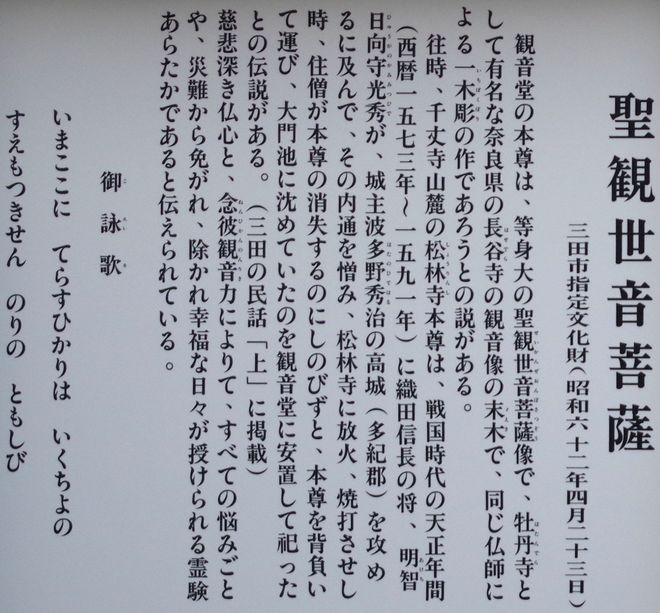 聖観世音菩薩
三田市指定文化財(昭和六十二年四月二十三日)
観音堂の本尊は、等身大の聖観世音菩薩像で、牡丹寺と
して有名な奈良県の長谷寺の観音像の末木で、同じ仏師に
よる一木彫の作であろうとの説がある。
往時、千丈寺山麓の松林寺本尊は、戦国時代の天正年間
(西暦一五七三年〜一五九一年)に織田信長の将、明智
日向守光秀が、城主波多野秀治の高城(多紀郡)を攻め
るに及んで、その内通を憎み、松林寺に放火、焼打させし
時、住僧が本尊の消失するのにしのびずと、本尊を背負い
て運び、大門池に沈めていたのを観音堂に安置して祀った
との伝説がある。(三田の民話「上」に掲載)
慈悲深き仏心と、念彼観音力によりて、すべての悩みごと
や、災難から免がれ、除かれ幸福な日々が授けられる霊験
あらたかであると伝えられている。
御詠歌
いまここに てらすひかりは いくちよの
すえもつきせん のりの ともしび